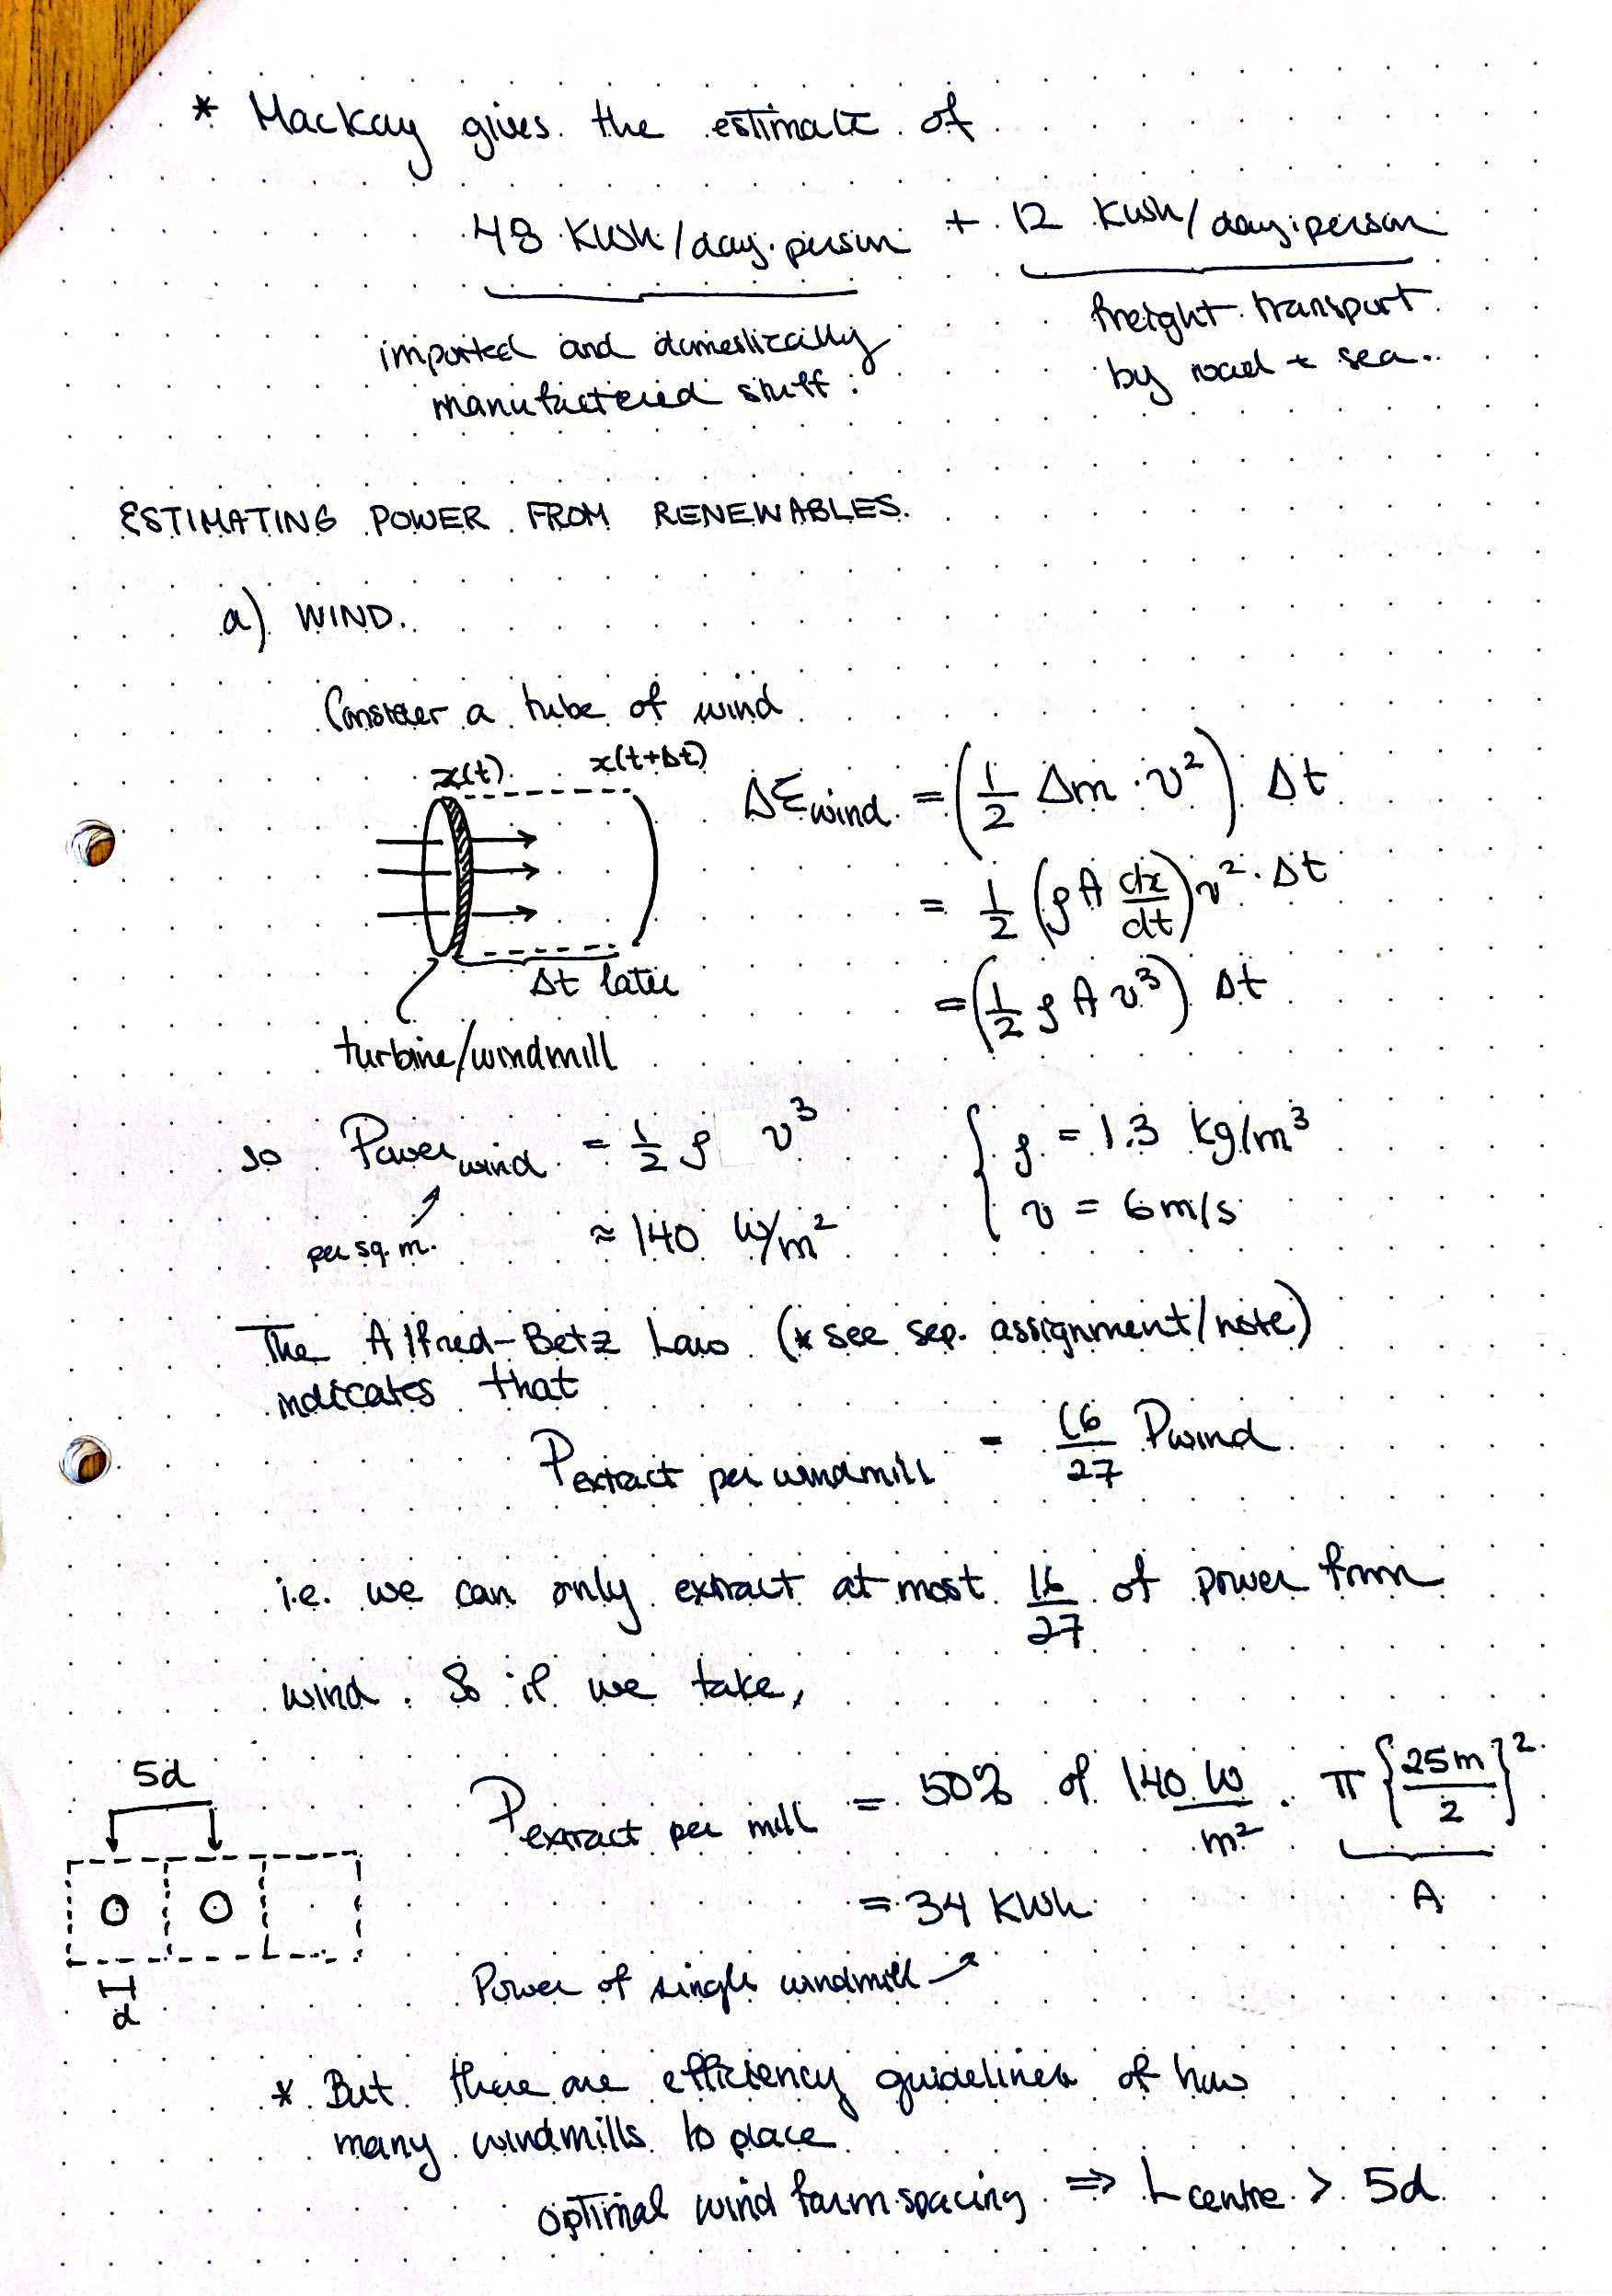 * Mackay gives the estimate of
48 KWh/day.person + 12 KWh/day.person
imported and domestically manufactered stuff.
freight transport by road + sea.
ESTIMATING POWER FROM RENEWABLES.
a) WIND.
Consider a tube of wind
x(t) x(t+Δt)
ΔEwind = (1/2 Δm · v²) Δt
= 1/2 (ρ A dx/dt) v² · Δt
Δt later
= (1/2 ρ A v³) Δt
turbine/windmill
so Power wind = 1/2 ρ v³
{ ρ = 1.3 kg/m³
v = 6 m/s
per sq. m.
≈ 140 W/m²
The Alfred-Betz Law (* see sep. assignment/note)
indicates that
Pextract per windmill = 16/27 Pwind
i.e. we can only extract at most 16/27 of power from
wind. So if we take,
5d
Pextract per mill = 50% of 140 W/m² · π {25m/2}²
A
= 34 KWh
d
Power of single windmill
* But there are efficiency guidelines of how
many windmills to place
optimal wind farm spacing ⇒ Lcentre > 5d